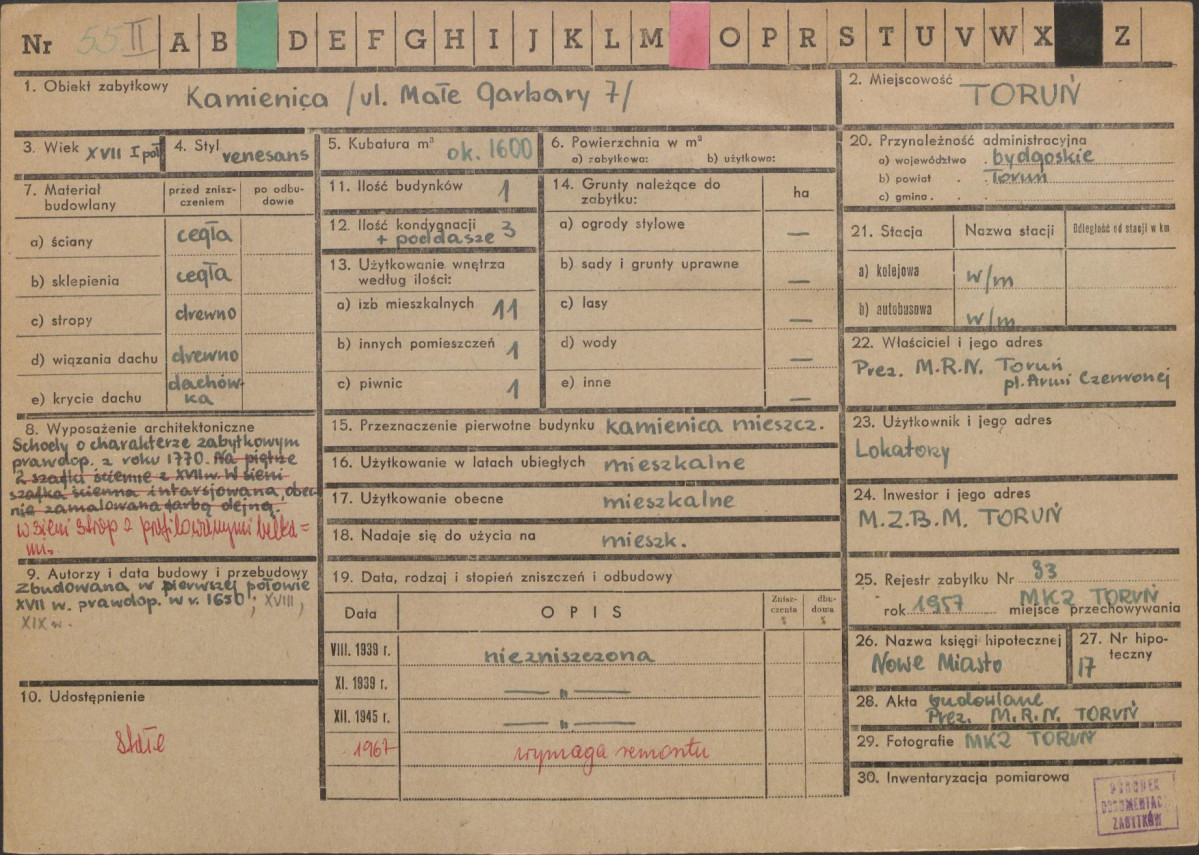 Nr 55 II A B D E F G H I J K L M O P R S T U V W X Z
1. Obiekt zabytkowy Kamienica /ul. Małe Garbary 7/
2. Miejscowość TORUŃ
3. Wiek XVII I poł
4. Styl renesans
5. Kubatura m³ ok. 1600
6. Powierzchnia w m²
a) zabytkowa: b) użytkowa:
7. Materiał budowlany
przed zniszczeniem
po odbudowie
a) ściany cegła
b) sklepienia cegła
c) stropy drewno
d) wiązania dachu drewno
e) krycie dachu dachówka
8. Wyposażenie architektoniczne
Schody o charakterze zabytkowym
prawdop. z roku 1770. Na piętrze
2 szafki ścienne z XVII w. W sieni
szafka ścienna intarsjowana, obec
nie zamalowana farbą olejną.
w sieni strop z profilowanymi belka=
mi.
9. Autorzy i data budowy i przebudowy
Zbudowana w pierwszej połowie
XVII w. prawdop. w r. 1650; XVIII,
XIX w.
10. Udostępnienie
stałe
11. Ilość budynków 1
12. Ilość kondygnacji
+ poddasze 3
13. Użytkowanie wnętrza
według ilości:
a) izb mieszkalnych 11
b) innych pomieszczeń 1
c) piwnic 1
14. Grunty należące do
zabytku:
ha
a) ogrody stylowe —
b) sady i grunty uprawne —
c) lasy —
d) wody —
e) inne —
15. Przeznaczenie pierwotne budynku kamienica mieszcz.
16. Użytkowanie w latach ubiegłych mieszkalne
17. Użytkowanie obecne mieszkalne
18. Nadaje się do użycia na mieszk.
19. Data, rodzaj i stopień zniszczeń i odbudowy
Data OPIS Zniszczenia % dbudowa %
VIII. 1939 r. niezniszczona
XI. 1939 r. — " —
XII. 1945 r. — " —
1967 wymaga remontu
20. Przynależność administracyjna
a) województwo . bydgoskie
b) powiat . . Toruń
c) gmina . . .
21. Stacja Nazwa stacji Odległość od stacji w km
a) kolejowa w/m
b) autobusowa w/m
22. Właściciel i jego adres
Prez. M.R.N. Toruń
pl. Armii Czerwonej
23. Użytkownik i jego adres
Lokatorzy
24. Inwestor i jego adres
M.Z.B.M. TORUŃ
25. Rejestr zabytku Nr 93
rok 1957 MKZ TORUŃ
miejsce przechowywania
26. Nazwa księgi hipotecznej
Nowe Miasto
27. Nr hipoteczny
17
28. Akta budowlane
Prez. M.R.N. TORUŃ
29. Fotografie MKZ TORUŃ
30. Inwentaryzacja pomiarowa
OŚRODEK
DOKUMENTACJI
ZABYTKÓW